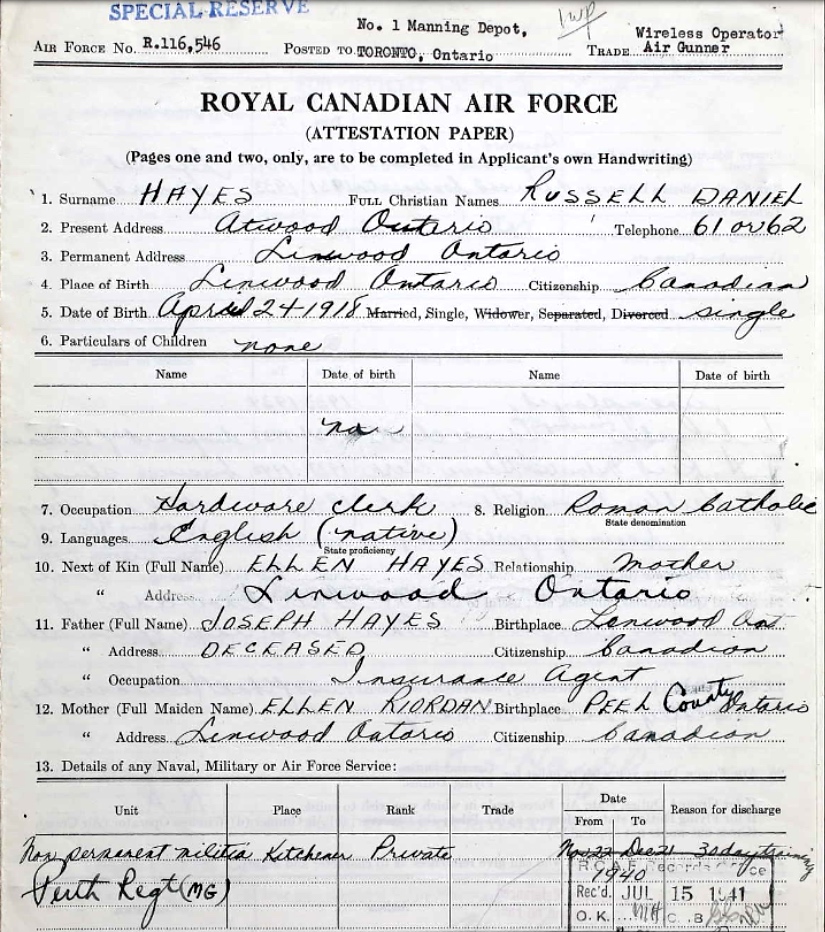 SPECIAL RESERVE
AIR FORCE No. R.116,546 POSTED TO No. 1 Manning Depot, TORONTO, Ontario TRADE Wireless Operator Air Gunner
ROYAL CANADIAN AIR FORCE
(ATTESTATION PAPER)
(Pages one and two, only, are to be completed in Applicant's own Handwriting)
1. Surname HAYES FULL Christian Names RUSSELL DANIEL
2. Present Address Atwood Ontario Telephone 61 or 62
3. Permanent Address Linwood Ontario
4. Place of Birth Linwood Ontario Citizenship Canadian
5. Date of Birth April 24-1918 Married, Single, Widower, Separated, Divorced single
6. Particulars of Children none
Name Date of birth Name Date of birth
no
7. Occupation Hardware clerk 8. Religion Roman Catholic
State denomination
9. Languages English (native)
State proficiency
10. Next of Kin (Full Name) ELLEN HAYES Relationship mother
" Address Linwood Ontario
11. Father (Full Name) JOSEPH HAYES Birthplace Linwood Ont
" Address DECEASED Citizenship Canadian
" Occupation Insurance Agent
12. Mother (Full Maiden Name) ELLEN RIORDAN Birthplace PEEL County Ontario
" Address Linwood Ontario Citizenship Canadian
13. Details of any Naval, Military or Air Force Service:
Unit Place Rank Trade Date From To Reason for discharge
Non permanent militia Kitchener Private Nov 22 Dec 21 30 day training
Perth Regt (MG) 1940
R.C.A.F. Records Office
Rec'd. JUL 15 1941
O.K. C.B